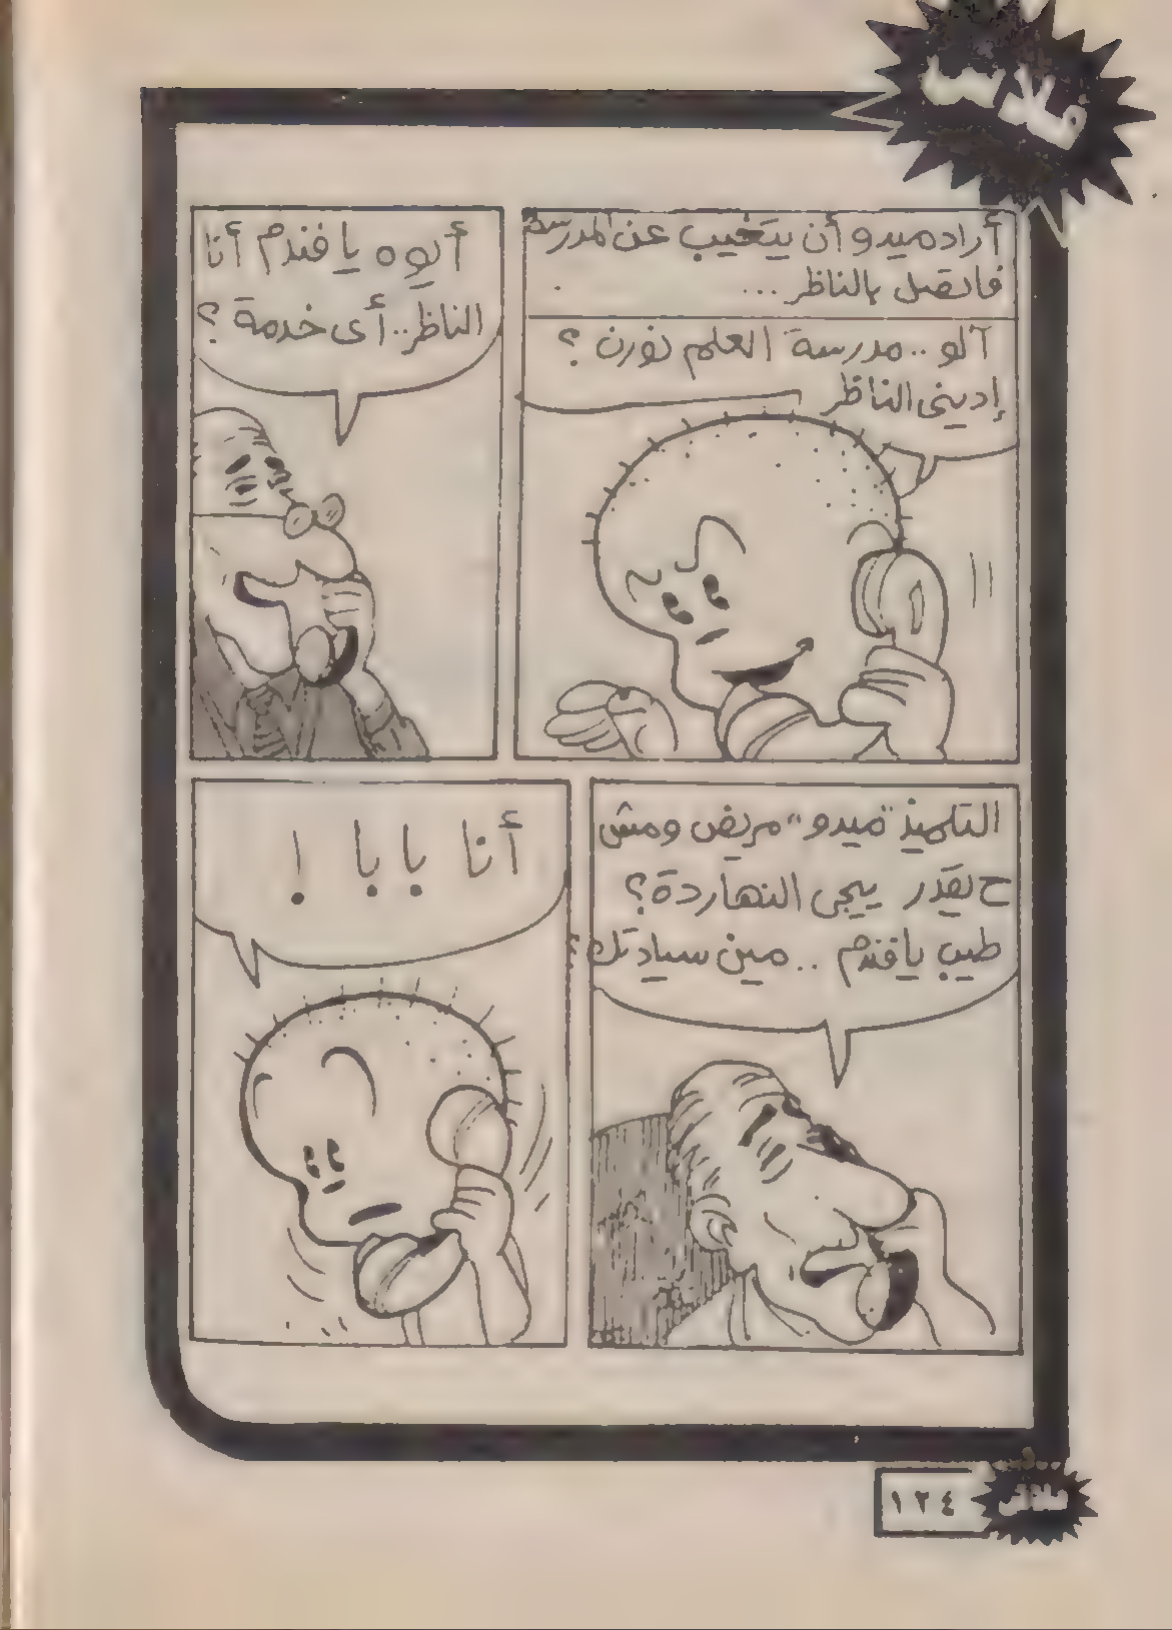 فلاش
أراد ميدو أن يتغيب عن المدرسة
فاتصل بالناظر...
آلو.. مدرسة العلم نورن ؟
إدينى الناظر
أيوه يا فندم أنا
الناظر.. أى خدمة ؟
التلميذ "ميدو" مريض ومش
ح يقدر ييجى النهاردة ؟
طيب يا فندم .. مين سيادتك ؟
أنا بابا !
١٢٤
فلاش